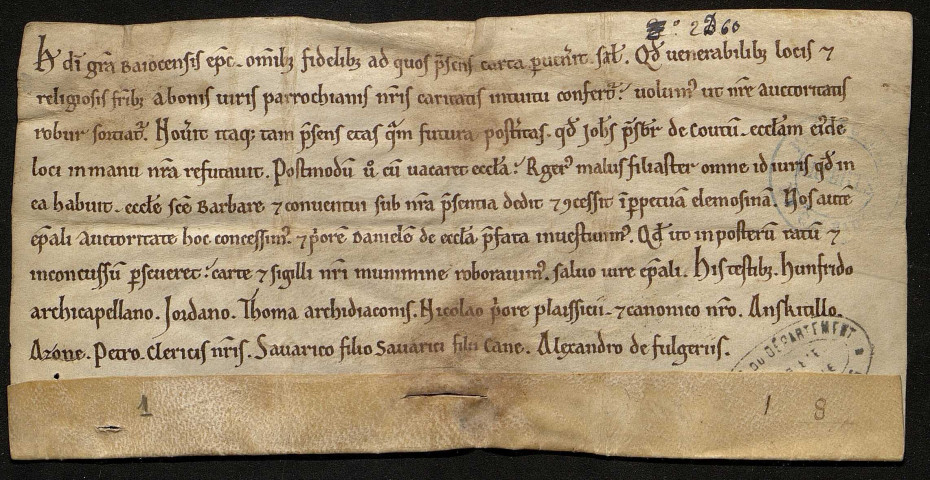 2D60
H dī grā baiocensis epc. omibꝫ fidelibꝫ ad quos psens carta puenit. salt. Qd uenerabilibꝫ locis ⁊
religiosis fribꝫ a bonis uiris parrochianis nris caritatis intuitu confert᷑. uolum᷒ ut nre auctoritatis
robur sortiat᷑. Nouit itaqꝫ tam psens etas qm futura postitas. qd johs psbr de coutū. ecclam eide
loci in manu nra refutauit. Postmodū u° cū uacaret eccla. Rger᷒ malus filiaster omne id iuris qd in
ea habuit. eccle sce Barbare ⁊ conuentui sub nra psentia dedit ⁊ ꝯcessit ī ppetuā elemosinā. Nos autē
epali auctoritate hoc concessim᷒. ⁊ porē Danielē de eccla pfata inuestiuim᷒. Qd ut o in posterū ratū ⁊
inconcussū pseueret. carte ⁊ sigilli nri munimine roborauim᷒. saluo iure epali. His testibꝫ. hunfrido
archicapellano. Jordano. Thoma archidiaconis. Nicolao pore plaissicii. ⁊ canonico nro. Anskitillo.
Azone. Petro. clericis nris. Sauarico filio Sauarici filii Cane. Alexandro de fulgeriis.
DU DÉPARTEMENT D
1 1 8